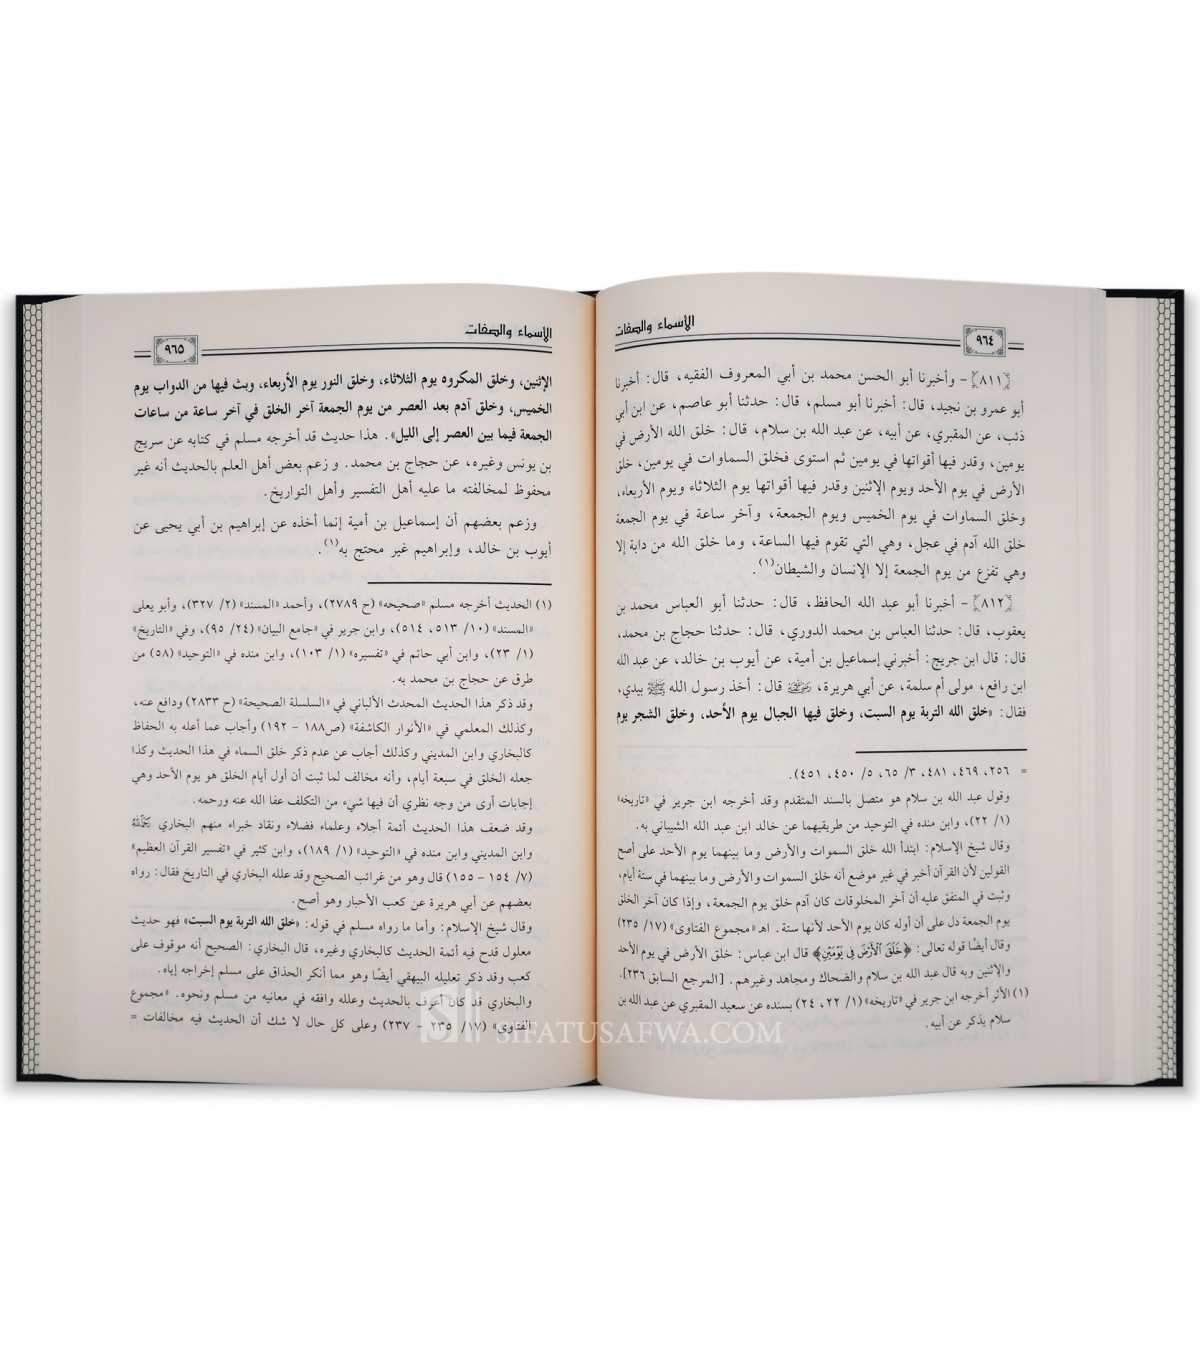 الأسماء والصفات
٩٦٤
﴿٨١١﴾ - وأخبرنا أبو الحسن محمد بن أبي المعروف الفقيه، قال: أخبرنا
أبو عمرو بن نجيد، قال: أخبرنا أبو مسلم، قال: حدثنا أبو عاصم، عن ابن أبي
ذئب، عن المقبري، عن أبيه، عن عبد الله بن سلام، قال: خلق الله الأرض في
يومين، وقدر فيها أقواتها في يومين ثم استوى فخلق السماوات في يومين، خلق
الأرض في يوم الأحد ويوم الإثنين وقدر فيها أقواتها يوم الثلاثاء ويوم الأربعاء،
وخلق السماوات في يوم الخميس ويوم الجمعة، وآخر ساعة في يوم الجمعة
خلق الله آدم في عجل، وهي التي تقوم فيها الساعة، وما خلق الله من دابة إلا
وهي تفزع من يوم الجمعة إلا الإنسان والشيطان(١).
﴿٨١٢﴾ - أخبرنا أبو عبد الله الحافظ، قال: حدثنا أبو العباس محمد بن
يعقوب، قال: حدثنا العباس بن محمد الدوري، قال: حدثنا حجاج بن محمد،
قال: قال ابن جريج: أخبرني إسماعيل بن أمية، عن أيوب بن خالد، عن عبد الله
ابن رافع، مولى أم سلمة، عن أبي هريرة، رضي الله عنه قال: أخذ رسول الله ﷺ بيدي،
فقال: «خلق الله التربة يوم السبت، وخلق فيها الجبال يوم الأحد، وخلق الشجر يوم
= ٢٥٦، ٤٦٩، ٤٨١، ٣/ ٦٥، ٥/ ٤٥٠، ٤٥١).
وقول عبد الله بن سلام هو متصل بالسند المتقدم وقد أخرجه ابن جرير في «تاريخه»
(١/ ٢٢)، وابن منده في التوحيد من طريقيهما عن خالد ابن عبد الله الشيباني به.
وقال شيخ الإسلام: ابتدأ الله خلق السموات والأرض وما بينهما يوم الأحد على أصح
القولين لأن القرآن أخبر في غير موضع أنه خلق السموات والأرض وما بينهما في ستة أيام،
وثبت في المتفق عليه أن آخر المخلوقات كان آدم خلق يوم الجمعة، وإذا كان آخر الخلق
يوم الجمعة دل على أن أوله كان يوم الأحد لأنها ستة. اهـ «مجموع الفتاوى» (١٧/ ٢٣٥)
وقال أيضًا قوله تعالى: ﴿خَلَقَ ٱلْأَرْضَ فِى يَوْمَيْنِ﴾ قال ابن عباس: خلق الأرض في يوم الأحد
والإثنين وبه قال عبد الله بن سلام والضحاك ومجاهد وغيرهم. [المرجع السابق ٢٣٦].
(١) الأثر أخرجه ابن جرير في «تاريخه» (١/ ٢٢، ٢٤) بسنده عن سعيد المقبري عن عبد الله بن
سلام يذكر عن أبيه.
الأسماء والصفات
٩٦٥
الإثنين، وخلق المكروه يوم الثلاثاء، وخلق النور يوم الأربعاء، وبث فيها من الدواب يوم
الخميس، وخلق آدم بعد العصر من يوم الجمعة آخر الخلق في آخر ساعة من ساعات
الجمعة فيما بين العصر إلى الليل». هذا حديث قد أخرجه مسلم في كتابه عن سريج
بن يونس وغيره، عن حجاج بن محمد. و زعم بعض أهل العلم بالحديث أنه غير
محفوظ لمخالفته ما عليه أهل التفسير وأهل التواريخ.
وزعم بعضهم أن إسماعيل بن أمية إنما أخذه عن إبراهيم بن أبي يحيى عن
أيوب بن خالد، وإبراهيم غير محتج به(١).
(١) الحديث أخرجه مسلم «صحيحه» (ح ٢٧٨٩)، وأحمد «المسند» (٢/ ٣٢٧)، وأبو يعلى
«المسند» (١٠/ ٥١٣، ٥١٤)، وابن جرير في «جامع البيان» (٢٤/ ٩٥)، وفي «التاريخ»
(١/ ٢٣)، وابن أبي حاتم في «تفسيره» (١/ ١٠٣)، وابن منده في «التوحيد» (٥٨) من
طرق عن حجاج بن محمد به.
وقد ذكر هذا الحديث المحدث الألباني في «السلسلة الصحيحة» (ح ٢٨٣٣) ودافع عنه،
وكذلك المعلمي في «الأنوار الكاشفة» (ص١٨٨ - ١٩٢) وأجاب عما أعله به الحفاظ
كالبخاري وابن المديني وكذلك أجاب عن عدم ذكر خلق السماء في هذا الحديث وكذا
جعله الخلق في سبعة أيام، وأنه مخالف لما ثبت أن أول أيام الخلق هو يوم الأحد وهي
إجابات أرى من وجه نظري أن فيها شيء من التكلف عفا الله عنه ورحمه.
وقد ضعف هذا الحديث أئمة أجلاء وعلماء فضلاء ونقاد خبراء منهم البخاري رحمه الله
وابن المديني وابن منده في «التوحيد» (١/ ١٨٩)، وابن كثير في «تفسير القرآن العظيم»
(٧/ ١٥٤ - ١٥٥) قال وهو من غرائب الصحيح وقد علله البخاري في التاريخ فقال: رواه
بعضهم عن أبي هريرة عن كعب الأحبار وهو أصح.
وقال شيخ الإسلام: وأما ما رواه مسلم في قوله: «خلق الله التربة يوم السبت» فهو حديث
معلول قدح فيه أئمة الحديث كالبخاري وغيره، قال البخاري: الصحيح أنه موقوف على
كعب وقد ذكر تعليله البيهقي أيضًا وهو مما أنكر الحذاق على مسلم إخراجه إياه.
والبخاري قد كان أعرف بالحديث وعلله وافقه في معانيه من مسلم ونحوه. «مجموع
الفتاوى» (١٧/ ٢٣٥ - ٢٣٧) وعلى كل حال لا شك أن الحديث فيه مخالفات =
SIFATUSAFWA.COM